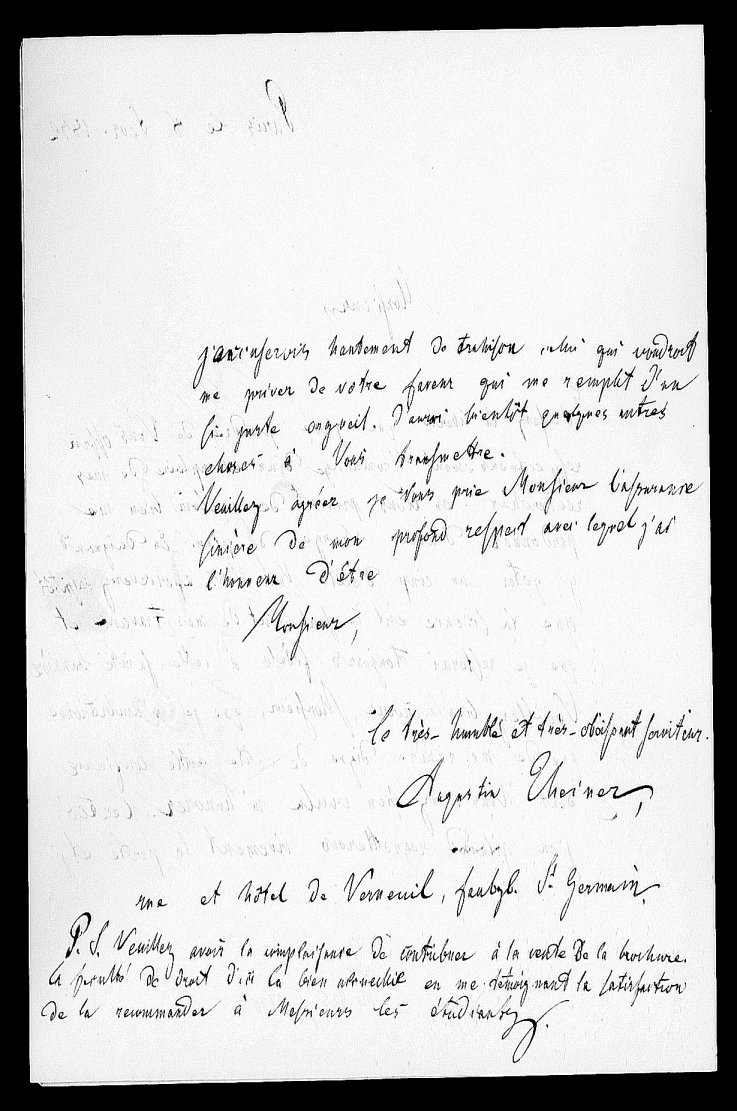 j'accuserois hautement de trahison celui qui voudroit
me priver de votre faveur qui me remplit d'un
si juste orgueil. J'aurai bientôt quelques autres
choses à Vous transmettre.
Veuillez agréer je Vous prie Monsieur l'assurance
sincère de mon profond respect avec lequel j'ai
l'honneur d'être
Monsieur,
le très-humble et très-obéissant serviteur.
Augustin Theiner,
rue et hôtel de Verneuil, faubg. St Germain.
P. S. Veuillez avoir la complaisance de contribuer à la vente de la brochure.
la faculté de droit d'ici l'a bien accueillie en me témoignant la satisfaction
de la recommander à Messieurs les étudiants.